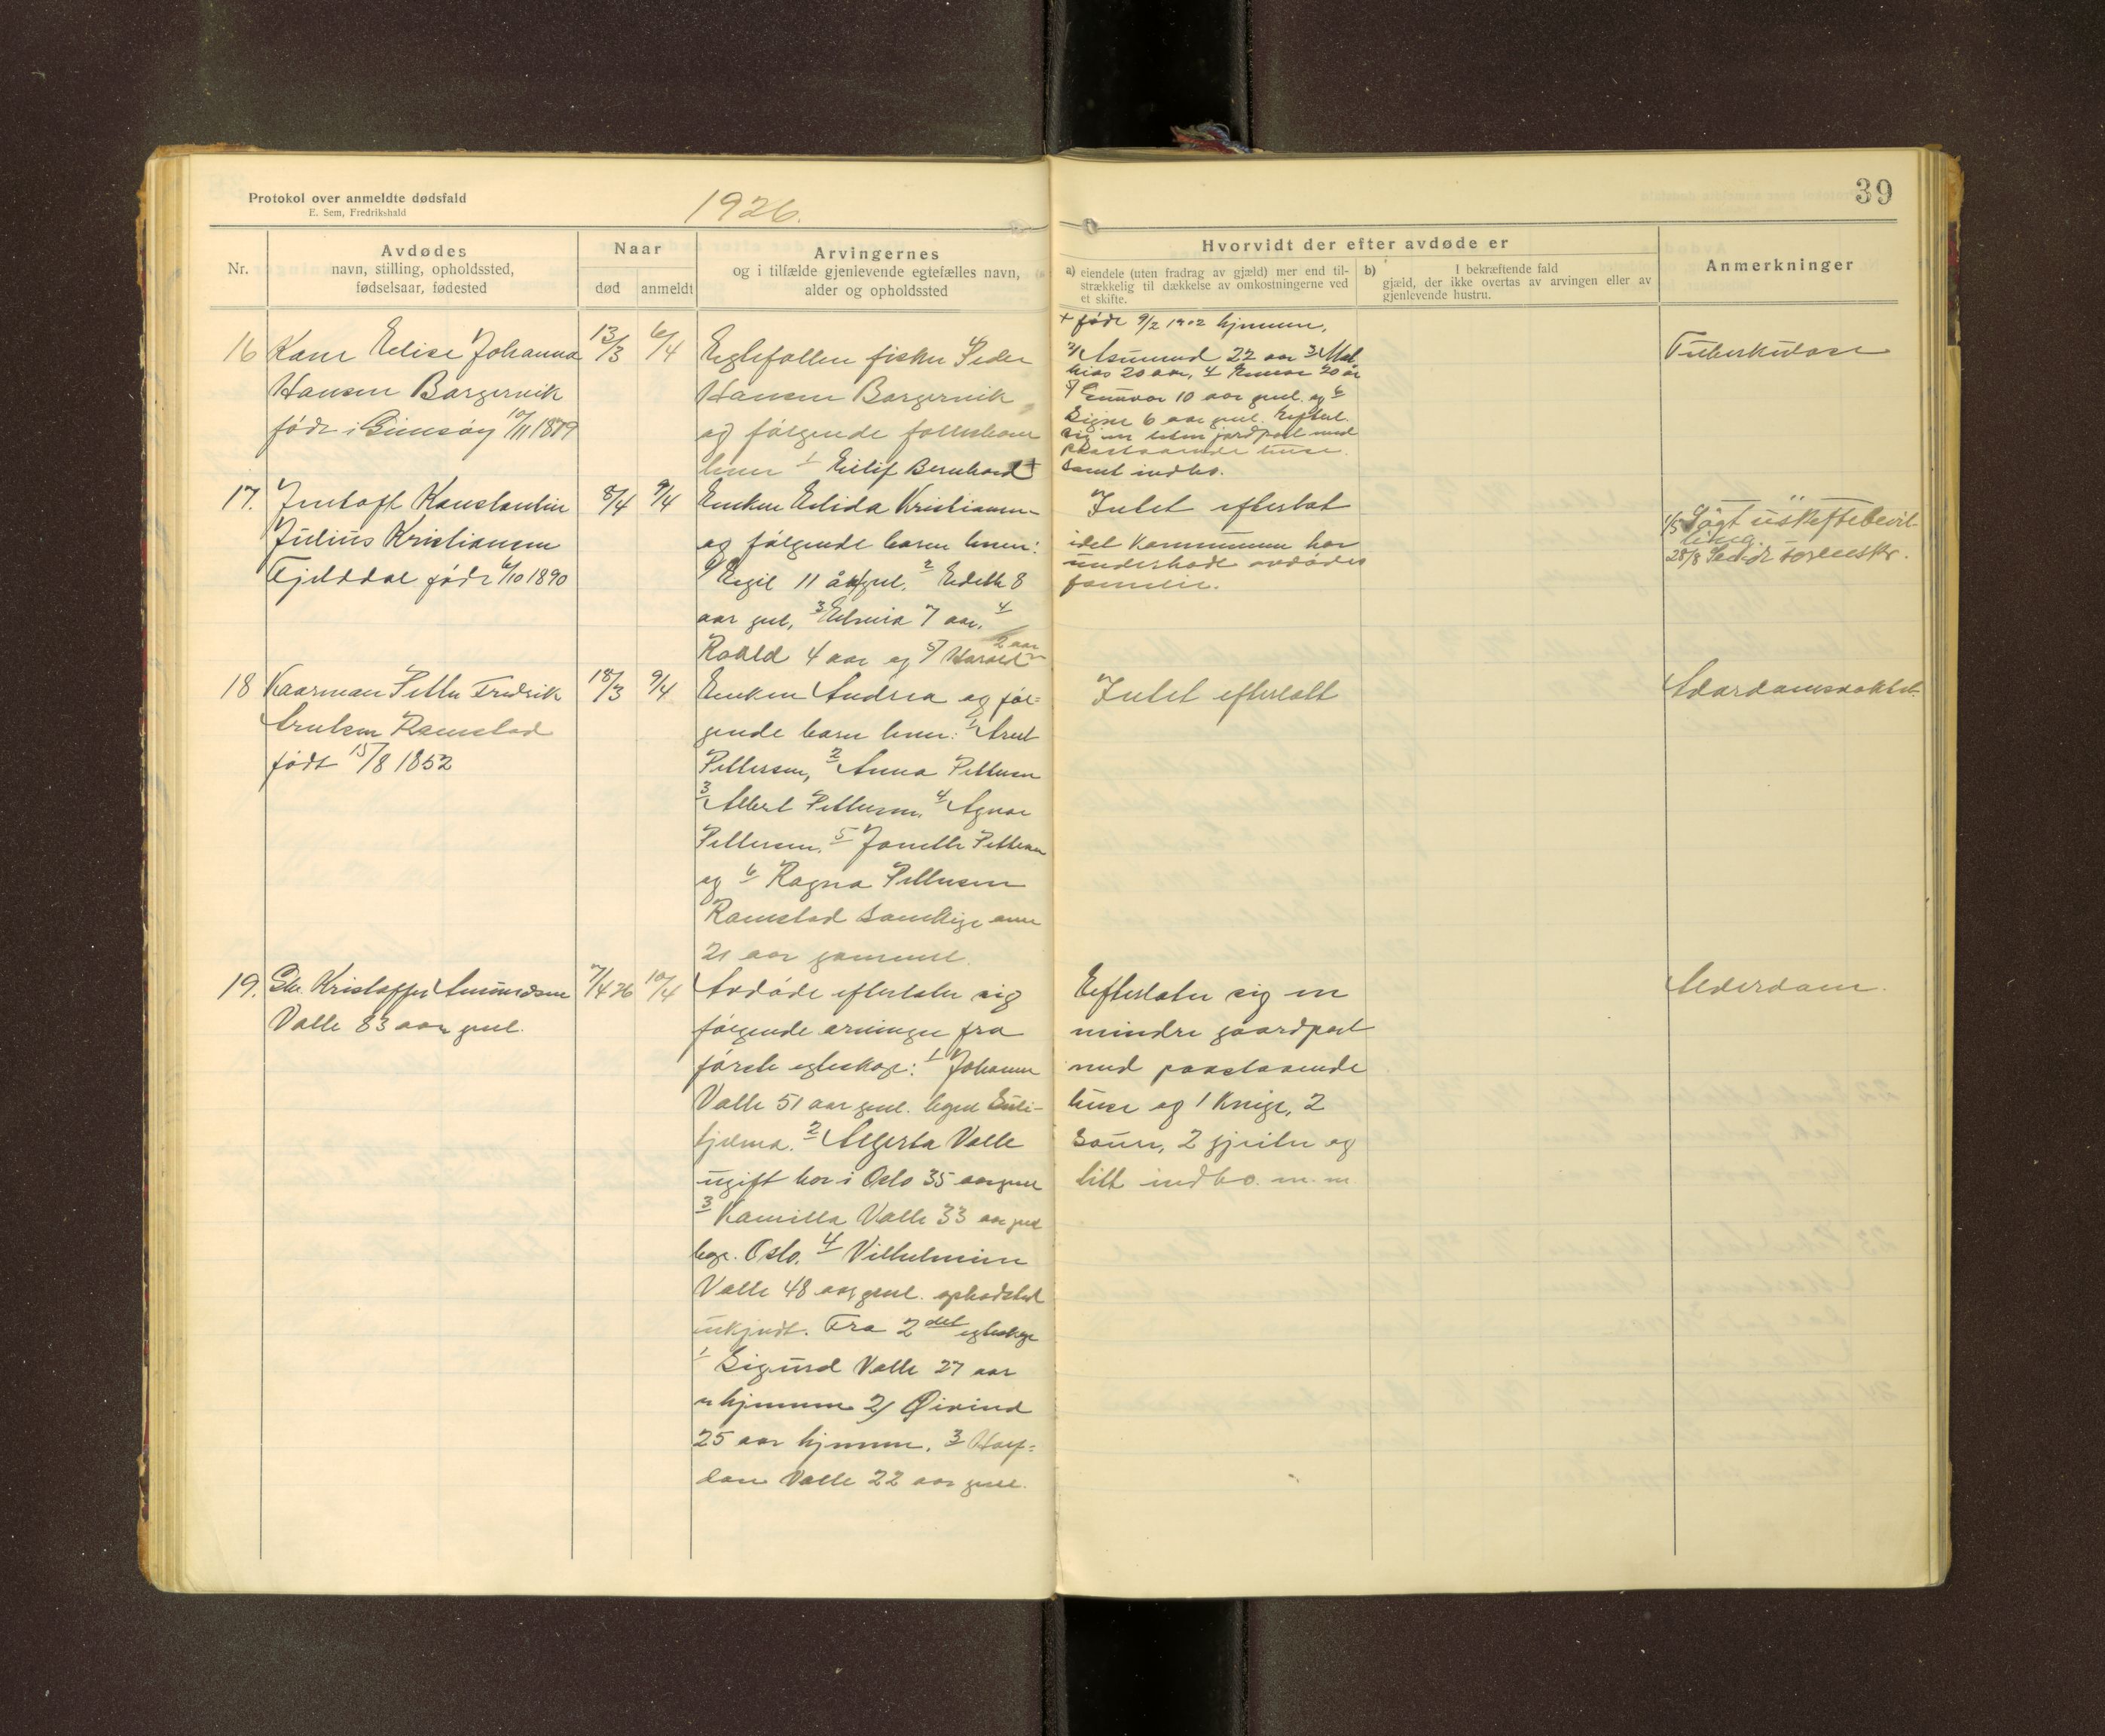 Protokol over anmeldte dødsfald
E. Sem, Fredrikshald
1926.
39
Nr.
Avdødes
navn, stilling, opholdssted,
fødselsaar, fødested
Naar
død
anmeldt
Arvingernes
og i tilfælde gjenlevende egtefælles navn,
alder og opholdssted
Hvorvidt der efter avdøde er
a) eiendele (uten fradrag av gjæld) mer end til-
strækkelig til dækkelse av omkostningerne ved
et skifte.
b) I bekræftende fald
gjæld, der ikke overtas av arvingen eller av
gjenlevende hustru.
Anmerkninger
16 Kone Edise Johanna
Hansen Borgervik
født i Gimsøy 10/11 1879
13/3
6/4
Egtefællen fisker Peder
Hansen Borgervik
og følgende fællesbarn
1 Eilif Bernhard +
+ født 9/2 1902 hjemme,
2/ Asmund 22 aar 3 Mat
hias 20 aar, 4 20 år
5/ Gunvor 10 aar gml. og 6
Signe 6 aar gml. Efterl.
sig en liten jordpart med
paastaaende huse
samt indbo.
Tuberkulose
17. Konstantin
Julius Kristiansen
Fjelddal født 6/10 1890
8/4
9/4
Enken Elida Kristiansen
og følgende barn
1 Eegil 11 år gml. 2 Edith 8
aar gml, 3 7 aar, 4
Roald 4 aar og 5/ Harald 2 aar
Intet efterlat
idet kommunen har
underholdt avdødes
familie.
1/5 Søgt uskiftebevil-
ling.
28/8 Sendt sorenskr.
18 Kaarman Petter Fredrik
Arntsen Ramstad
født 15/8 1852
18/3
9/4
Enken Andrea og føl=
gende barn 1 Arnt
Pettersen, 2 Anna Pettersen
3 Albert Pettersen, 4 Agnar
Pettersen, 5 Jonette Pettersen
og 6 Ragna Pettersen
Ramstad samtlige over
21 aar gammel.
Intet efterlatt
19. Kristoffer Amundsen
Valle 83 aar gml.
7/4 26
10/4
Avdøde efterlater sig
følgende arvinger fra
første egteskap: 1 Johanna
Valle 51 aar gml.
2 Algerta Valle
ugift bor i Oslo 35 aar gml
3 Kamilla Valle 33 aar gml
Oslo. 4 Vilhelmine
Valle 48 aar gml. opholdsted
ukjendt. Fra 2det egteskap
1 Sigurd Valle 27 aar
hjemme 2/ Øivind
25 aar hjemme, 3 Half=
dan Valle 22 aar gml.
Efterlater sig en
mindre gaardpart
med paastaaende
huse og 1 kvige, 2
sauer, 2 gjeiter og
litt indbo m. m
Alderdom.